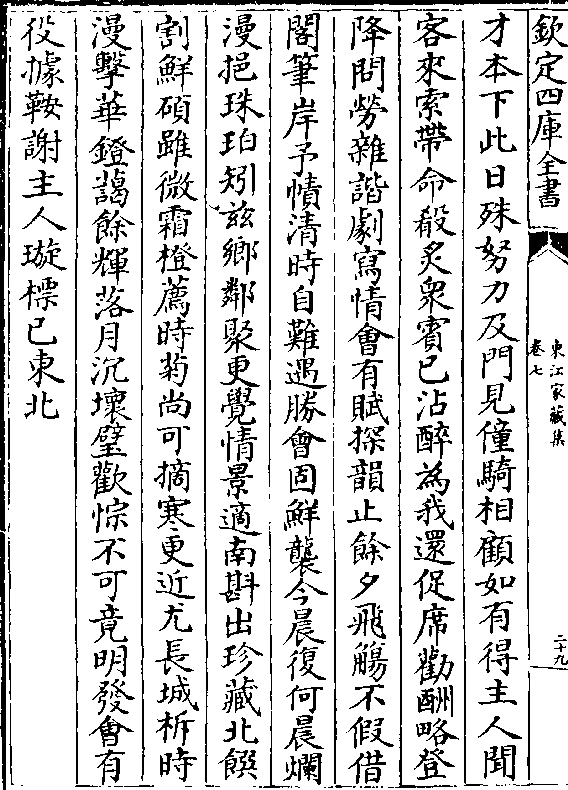 欽定四庫全書
東江家藏集
卷七
二十九
才本下此日殊努力及門見僮騎相顧如有得主人聞
客來索帶命殽炙衆賓已沾醉為我還促席勸酬略登
降問勞雜諧劇寫情會有賦探韻止餘夕飛觴不假借
閣筆岸予幘清時自難遇勝會固鮮襲今晨復何晨爛
漫挹珠珀矧兹鄉鄰聚更覺情景適南斟出珍藏北饌
割鮮碩雖微霜橙薦時菊尚可摘寒更近尤長城柝時
漫擊華鐙藹餘輝落月沉壞璧歡悰不可竟明發會有
役據鞍謝主人璇標已東北